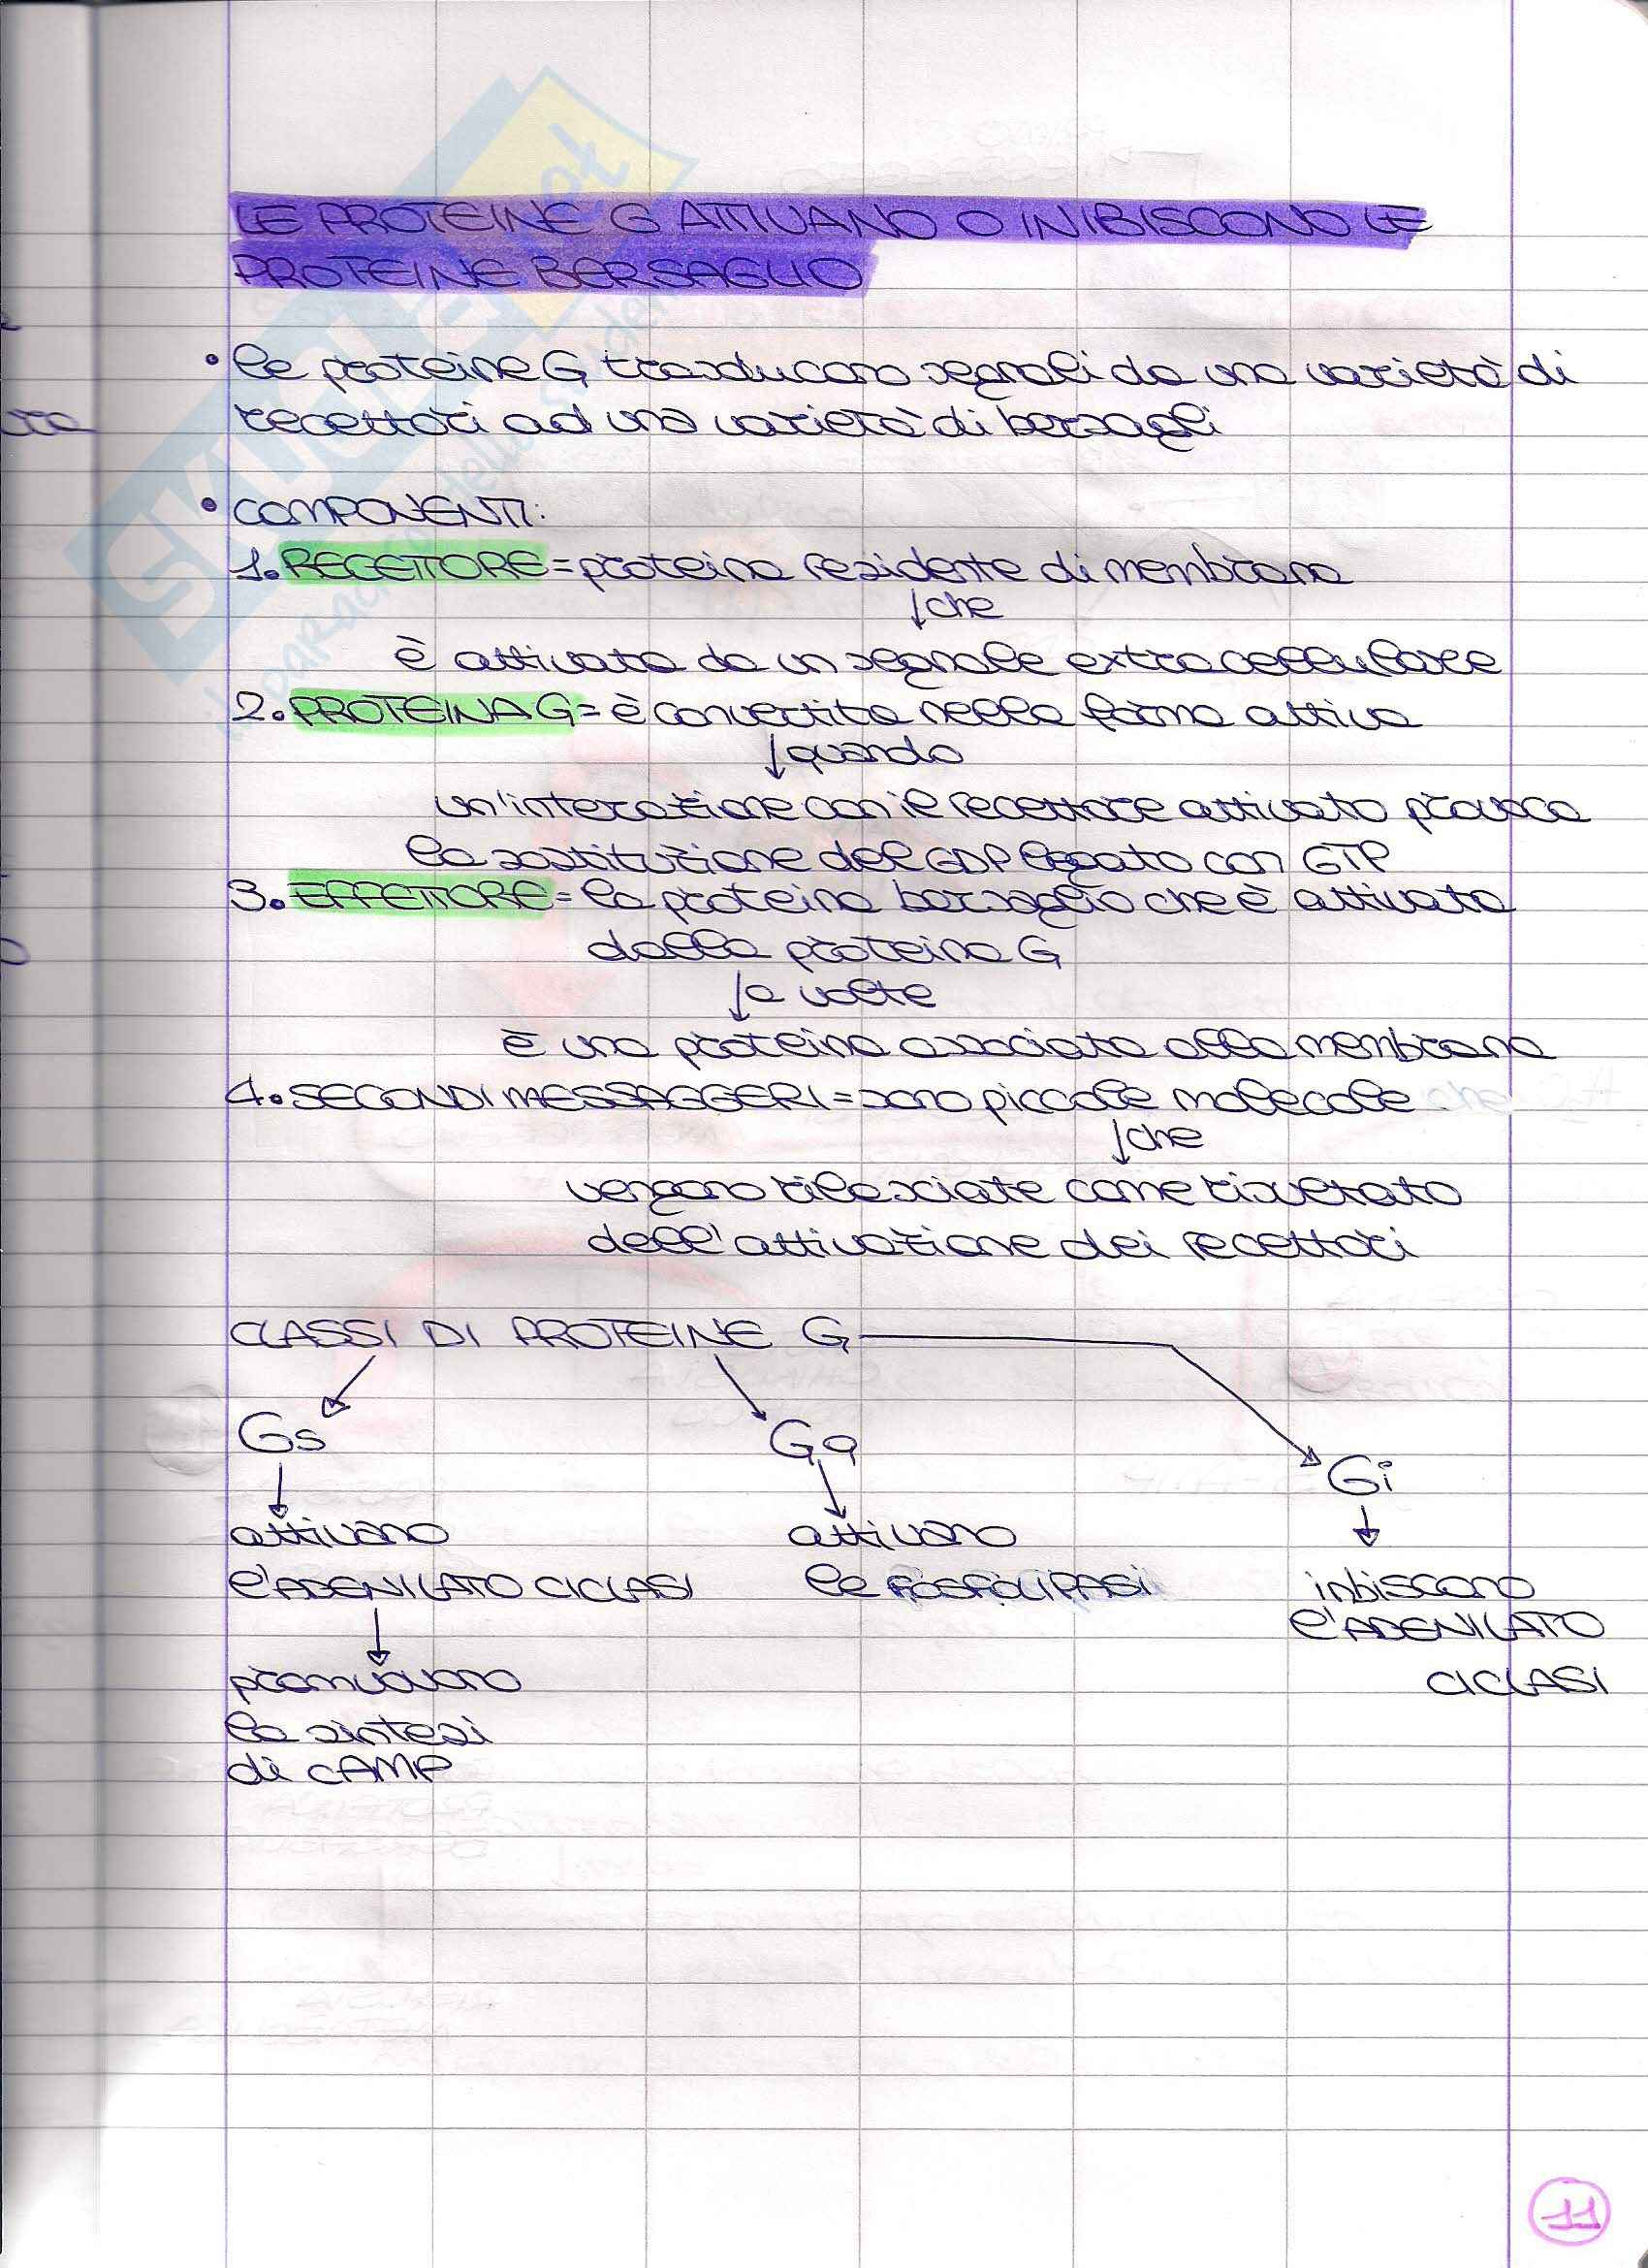 LE PROTEINE G ATTIVANO O INIBISCONO LE
PROTEINE BERSAGLIO
• le proteine G trasducono segnali da una varietà di
recettori ad una varietà di bersagli
• COMPONENTI:
1. RECETTORE = proteina residente di membrana
che
è attivata da un segnale extracellulare
2. PROTEINA G = è convertita nella forma attiva
quando
un'interazione con il recettore attivato provoca
la sostituzione del GDP legato con GTP
3. EFFETTORE = la proteina bersaglio che è attivata
dalla proteina G
a volte
è una proteina associata alla membrana
4. SECONDI MESSAGGERI = sono piccole molecole
che
vengono rilasciate come risultato
dell'attivazione dei recettori
CLASSI DI PROTEINE G
Gs Gq Gi
attivano attivano
l'ADENILATO CICLASI le FOSFOLIPASI inbiscono
l'ADENILATO
promuovono CICLASI
la sintesi
di cAMP
11